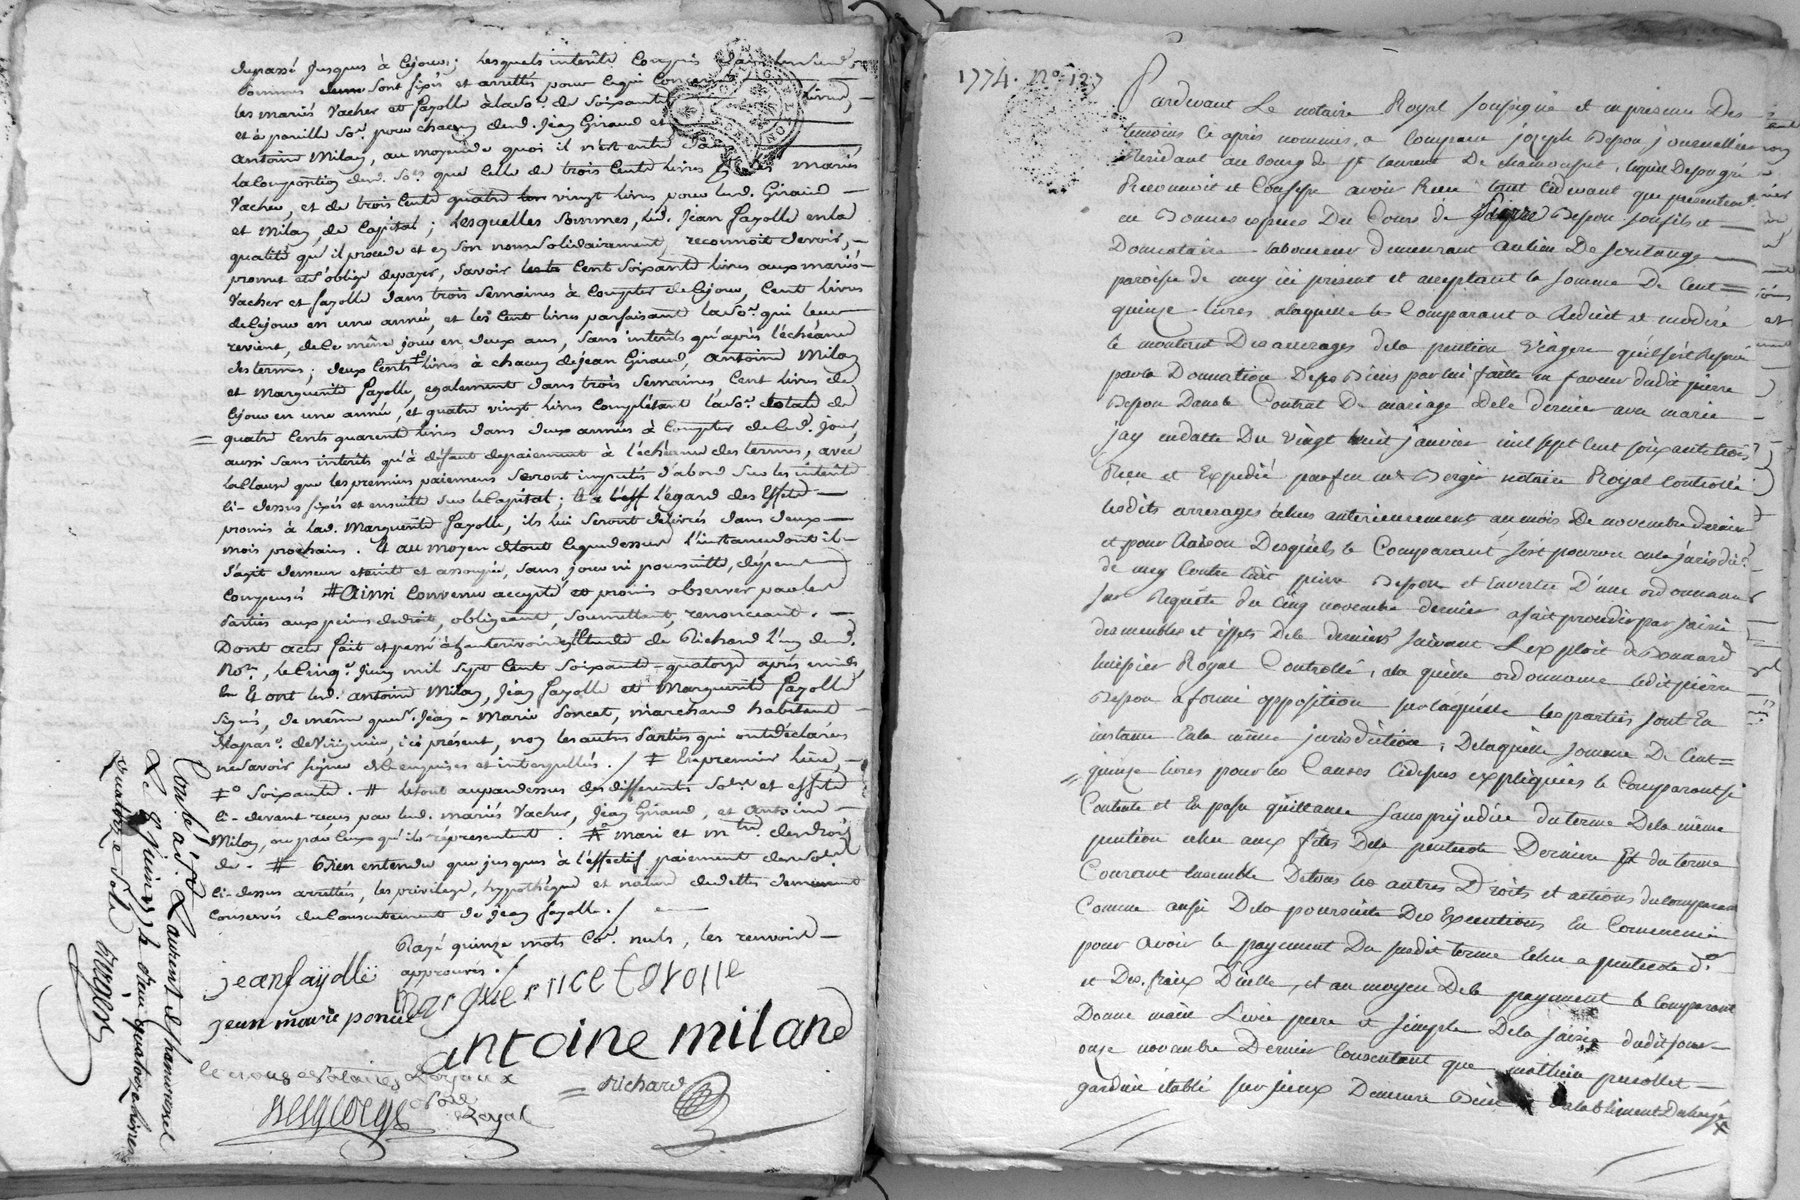 dupassé jusques à cejour; lesquels intérêts compris dans lesd.
sommes sont fixés et arrêttés pour cequi concerne
les mariés Vacher et fayolle à la so.e de soixante livres,
et à pareille so.e pour chacun desd. Jean Giraud et
antoine Milan, au moyende quoi il n'est entré dans
la composition desd. so.es que celle de trois cents livres mariés
Vacher, et de trois cents quatre vingt livres pour led. Giraud
et Milan, de capital; lesquelles sommes, led. Jean fayolle en la
qualité qu'il procede et en son nom solidairement, reconnoit devoir,
promet et s'oblige depayer, savoir cent soixante livres aux mariés
Vacher et fayolle dans trois semaines à compter de cejour, cent livres
de cejour en une année, et les cent livres parfaisant la so.e qui leur
revient, de ce même jour en deux ans, sans intérêts qu'après l'échéance
des termes; deux cents livres à chacun de jean Giraud, antoine Milan
et Marguerite fayolle, egalement dans trois semaines, cent livres de
cejour en une année, et quatre vingt livres complétant la so.e totale de
quatre cents quarente livres dans deux années à compter de ced. jour,
aussi sans intérêts qu'à défaut depaiement à l'échéance des termes, avec
la clause que les premiers paiemens seront imputés d'abord sur les intérêts
ci-dessus fixés et ensuitte sur le capital. Et a l'égard des effets
promis à lad. Marguerite fayolle, ils lui seront délivrés dans deux
mois prochains. Et au moyen detout cequedessus l'instance dont il
s'agit demeure eteinte et assoupie, sans jour ni poursuitte, dépens
compensés # Ainsi convenu accepté et promis observer par les
parties aux peines dedroit, obligeant, soumettant, renonceant.
Dont acte fait et passé à etude de Richard l'un desd.
No.res, le cinq.e Juin mil sept cent soixante-quatorze après midi
Et ont led. antoine Milan, Jean fayolle et Marguerite fayolle
signés, de même que s.r Jean-Marie Poncet, marchand habitant
la par.e de Virignieu, ici présent, non les autres parties qui ont déclarés
ne savoir signer de ce enquises et interpellés. / ‡ En premier lieu,
‡° soixante. # le tout aupardessus des differents so.es et effets
ci-devant reçus par led. mariés Vacher, Jean Giraud, et antoine
Milan, ou par ceux qu'ils représentent. mari et m.tre des droits
de. # Bien entendu que jusques à l'effectif paiement des so.es
ci-dessus arrettés, les privilege, hypothéque et nature dedettes demeurent
conservés du consentement de jean fayolle. /
Rayé quinze mots co.e nuls, les renvois
approuvés. /
jean fayolle
Marguerite fayolle
jean marie poncet
antoine miland
Richard
Desgeorge
No.re Royal
Con.lé à S.t Laurent de Chamousset
Le 9 juin 1774
quatorze sols
1774. N.o 127
Pardevant Le notaire Royal soussigné et en presence Des
temoins cy après nommés, a comparu jozeph Besson journallier
Residant au bourg de S.t Laurent De chamousset, lequel De son gré
Reconnoit et confesse avoir Reçu tant cidevant que presentem.t
en Bonnes especes Du Cours de pierre Besson son fils et
Donnataire laboureur demeurant au lieu De Soulange
paroisse de mey ici present et acceptant la somme De Cent
quinze livres, alaquelle le Comparant a Reduit et moderé
le montant Des arrerages dela pention viagere qu'il s'est Reservé
par la Donnation De ses Biens par lui faitte en faveur dudit pierre
Besson Dans le Contrat De mariage dele dernier avec marie
jay endatte Du vingt huit janvier mil sept cent soixante trois
Reçu et Expedié par feu m.e Berger notaire Royal Controllé
lesdits arrerages échus anterieurement au mois De novembre dernier
et pour Raison Desquels le Comparant s'est pourvu en la jurisdic.n
de mey Contre ledit pierre Besson et Envertu D'une ordonnance
sur Requête du Cinq novembre dernier a fait proceder par saisie
des meubles et effets Dele dernier suivant l'exploit de Bonnard
huissier Royal Controllé, ala quelle ordonnance ledit pierre
Besson a formé opposition sur laquelle les parties sont En
instance En la même jurisdiction; Delaquelle somme De Cent
quinze livres pour les Causes cidessus expliquées le Comparant se
Contente et En passe quittance sans prejudice du terme Dela même
pention échu aux fêtes Dela pentecote Derniere Et du terme
Courant Ensemble De tous les autres Droits et actions du Comparant
Comme aussi Dela poursuite Des Executions En Commencées
pour avoir le payement Du susdit terme Echu a pentecote d.re
et Des fraix D'icelle, et au moyen Dele payement le Comparant
Donne main Levée pure et simple Dela saisie dudit jour
onze novembre Dernier Consentant que mathieu
gardien établi sur jceux Demeure